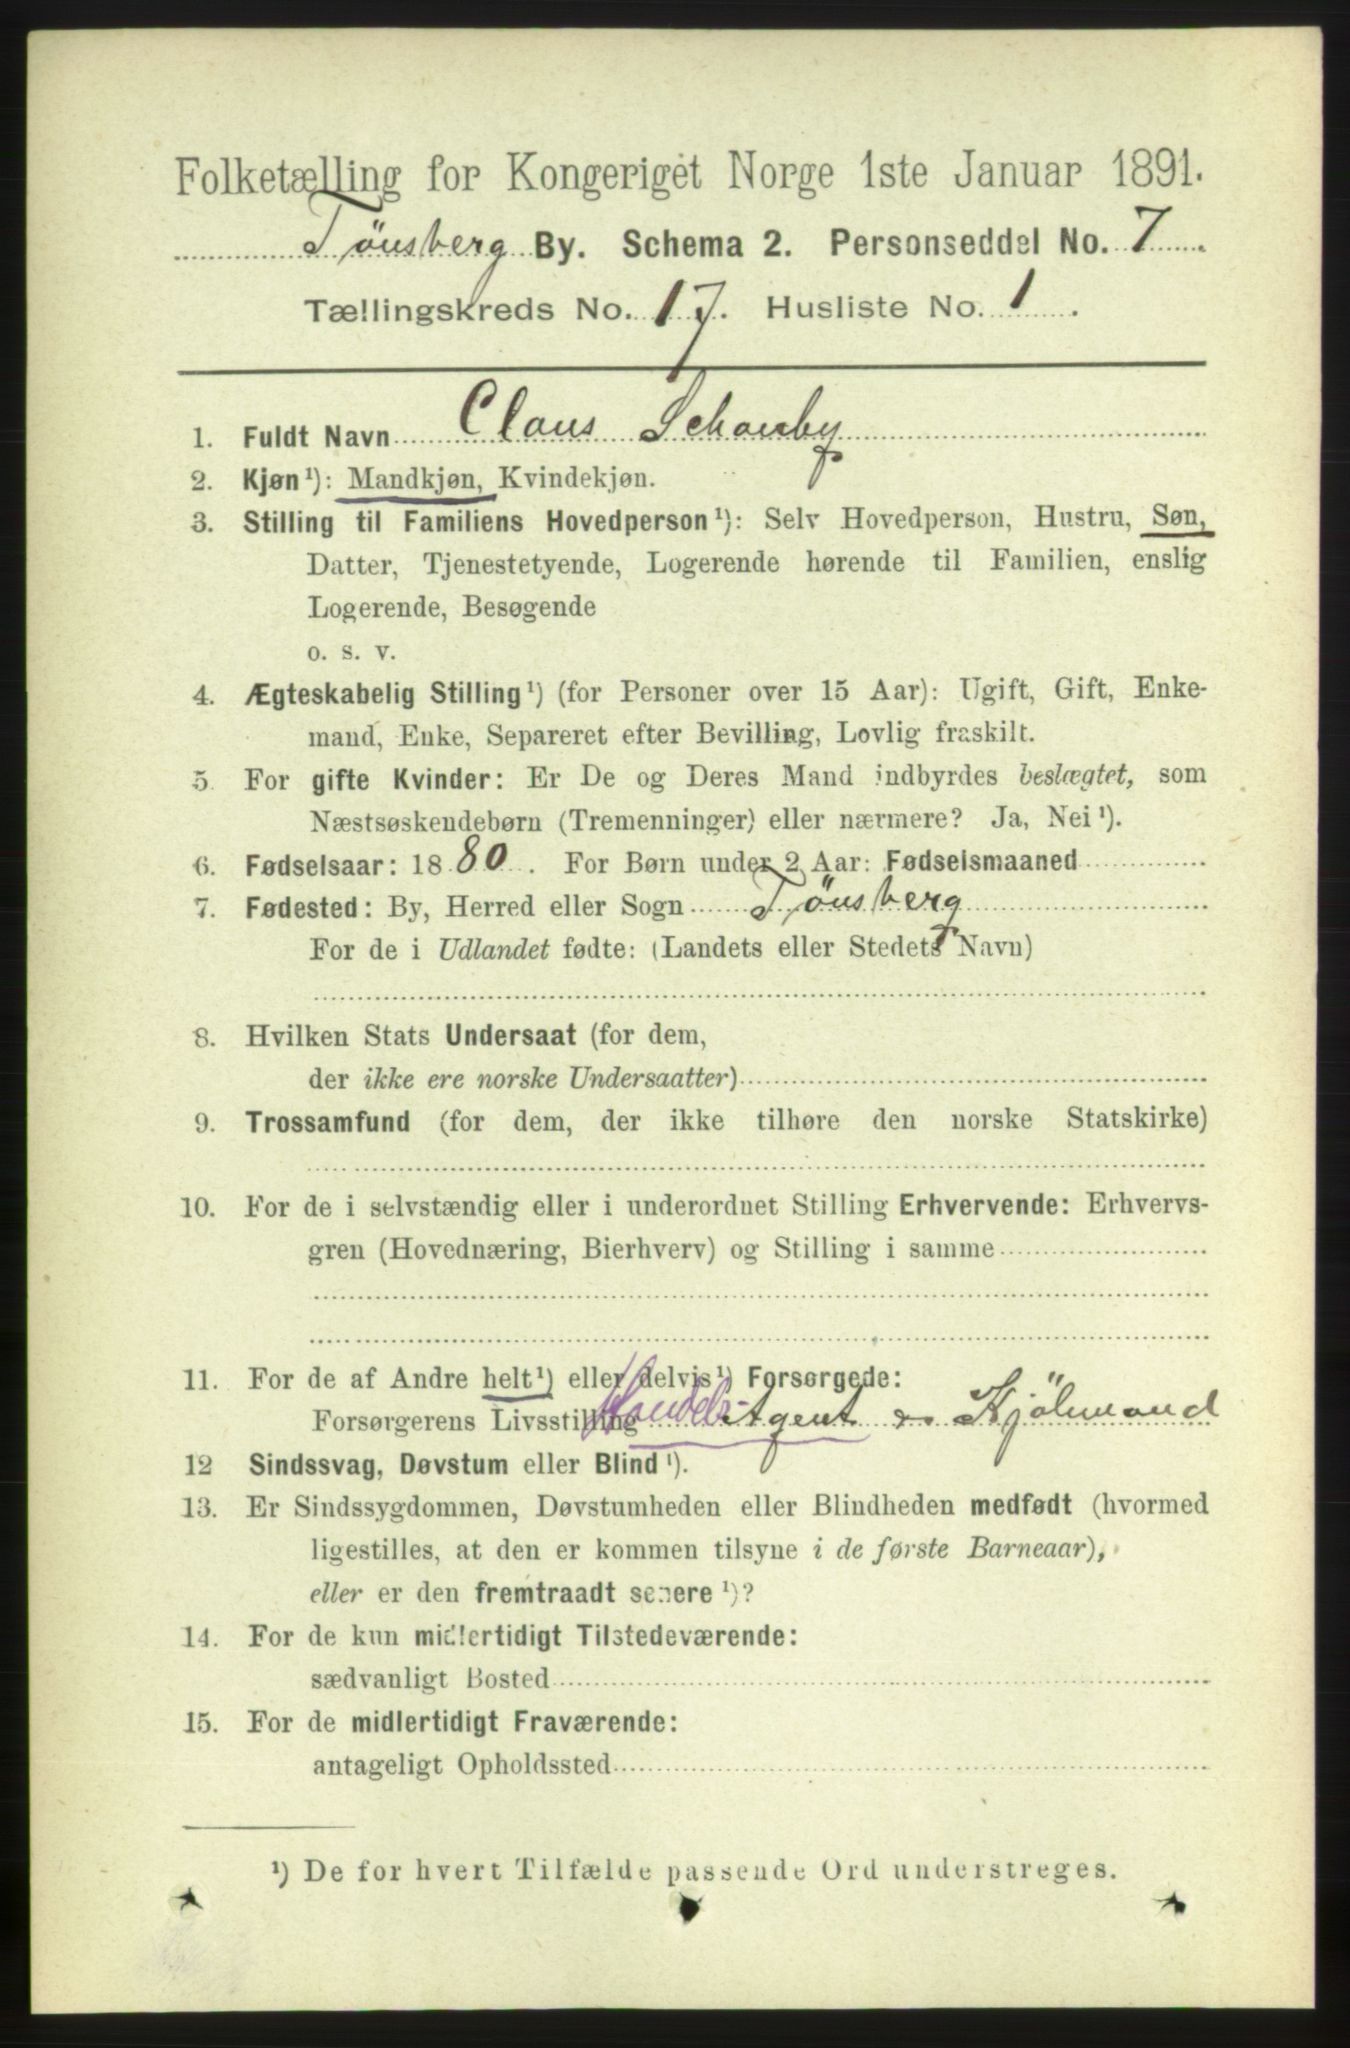 Folketælling for Kongeriget Norge 1ste Januar 1891.
Tønsberg By. Schema 2. Personseddel No. 7
Tællingskreds No. 17. Husliste No. 1.
1. Fuldt Navn Claus Schouby
2. Kjøn ¹): Mandkjøn, Kvindekjøn.
3. Stilling til Familiens Hovedperson ¹): Selv Hovedperson, Hustru, Søn,
Datter, Tjenestetyende, Logerende hørende til Familien, enslig
Logerende, Besøgende
o. s. v.
4. Ægteskabelig Stilling ¹) (for Personer over 15 Aar): Ugift, Gift, Enke-
mand, Enke, Separeret efter Bevilling, Lovlig fraskilt.
5. For gifte Kvinder: Er De og Deres Mand indbyrdes beslægtet, som
Næstsøskendebørn (Tremenninger) eller nærmere? Ja, Nei ¹).
6. Fødselsaar: 1880. For Børn under 2 Aar: Fødselsmaaned
7. Fødested: By, Herred eller Sogn Tønsberg
For de i Udlandet fødte: (Landets eller Stedets Navn)
8. Hvilken Stats Undersaat (for dem,
der ikke ere norske Undersaatter)
9. Trossamfund (for dem, der ikke tilhøre den norske Statskirke)
10. For de i selvstændig eller i underordnet Stilling Erhvervende: Erhvervs-
gren (Hovednæring, Bierhverv) og Stilling i samme
11. For de af Andre helt ¹) eller delvis ¹) Forsørgede:
Forsørgerens Livsstilling Handels-Agent & Kjølmand
12 Sindssvag, Døvstum eller Blind ¹).
13. Er Sindssygdommen, Døvstumheden eller Blindheden medfødt (hvormed
ligestilles, at den er kommen tilsyne i de første Barneaar),
eller er den fremtraadt senere ¹)?
14. For de kun midlertidigt Tilstedeværende:
sædvanligt Bosted
15. For de midlertidigt Fraværende:
antageligt Opholdssted
¹) De for hvert Tilfælde passende Ord understreges.